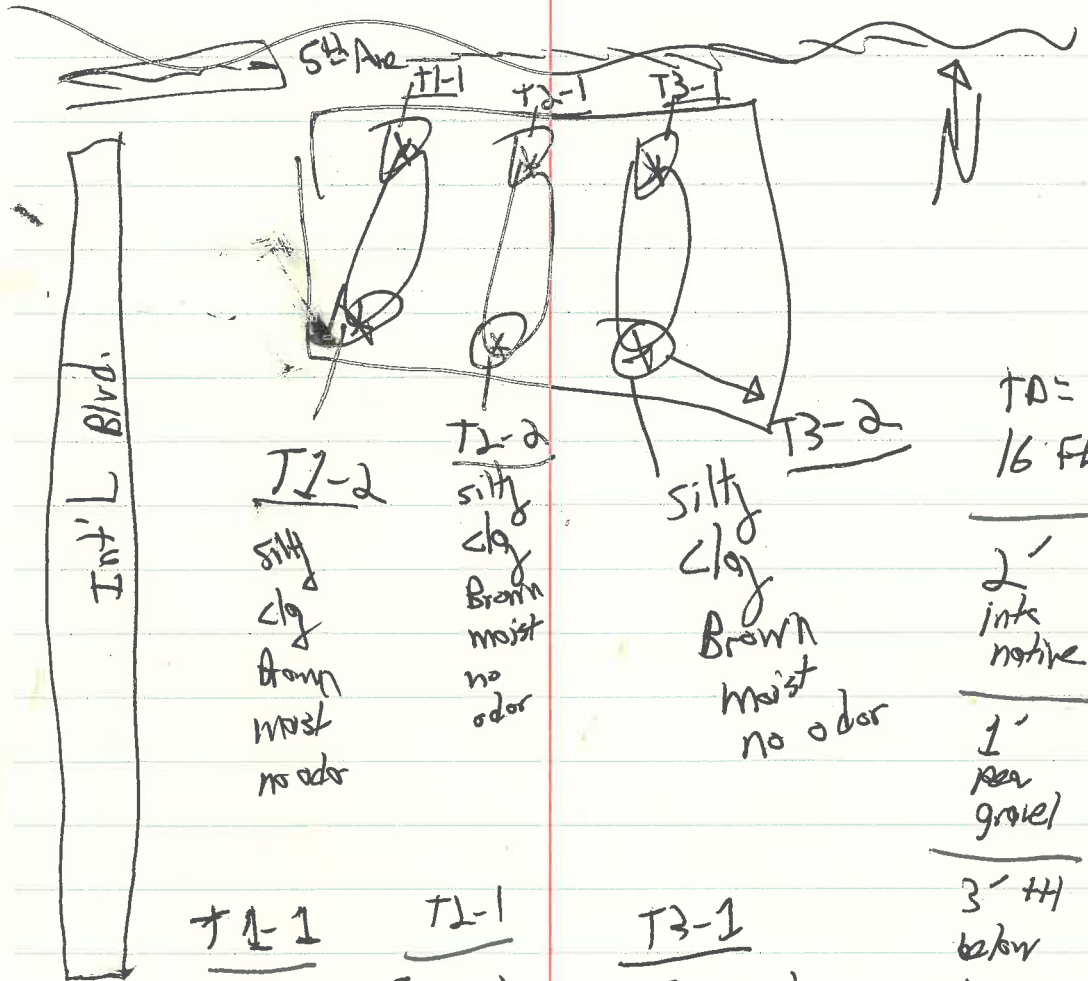 5th Ave
T1-1
T2-1
T3-1
N
Int'L Blvd.
T1-2
silty
clay
Brown
moist
no odor
T2-2
silty
clay
Brown
moist
no
odor
T3-2
silty
clay
Brown
moist
no odor
TD=
16 Ft
2'
into
native
1'
pea
gravel
3'
below
T1-1
T2-1
T3-1